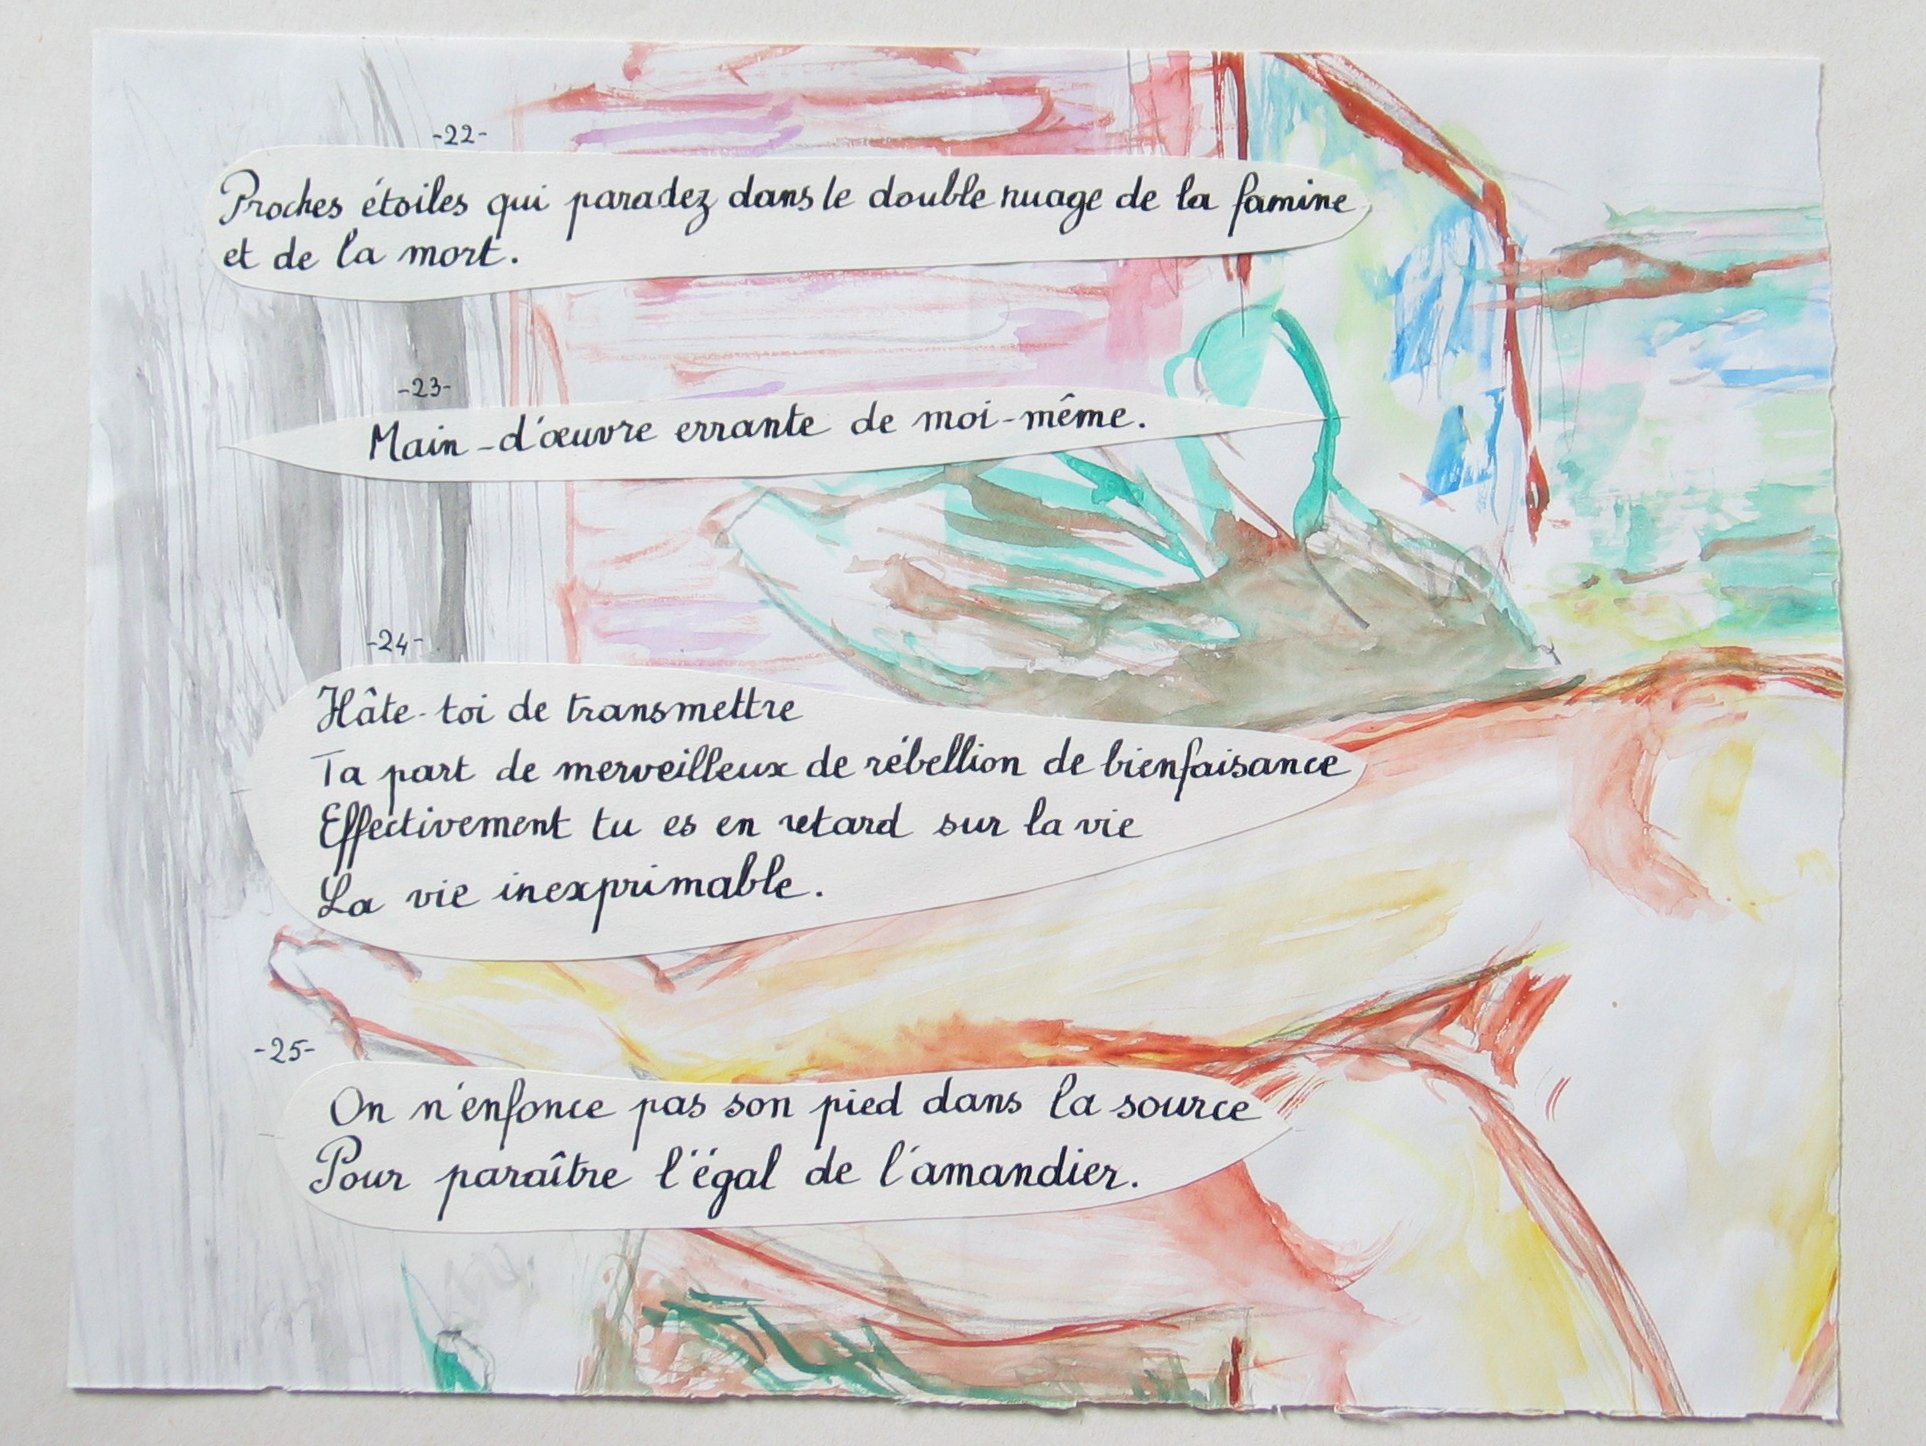 -22-
Proches étoiles qui paradez dans le double nuage de la famine
et de la mort.
-23-
Main-d'œuvre errante de moi-même.
-24-
Hâte-toi de transmettre
Ta part de merveilleux de rébellion de bienfaisance
Effectivement tu es en retard sur la vie
La vie inexprimable.
-25-
On n'enfonce pas son pied dans la source
Pour paraître l'égal de l'amandier.